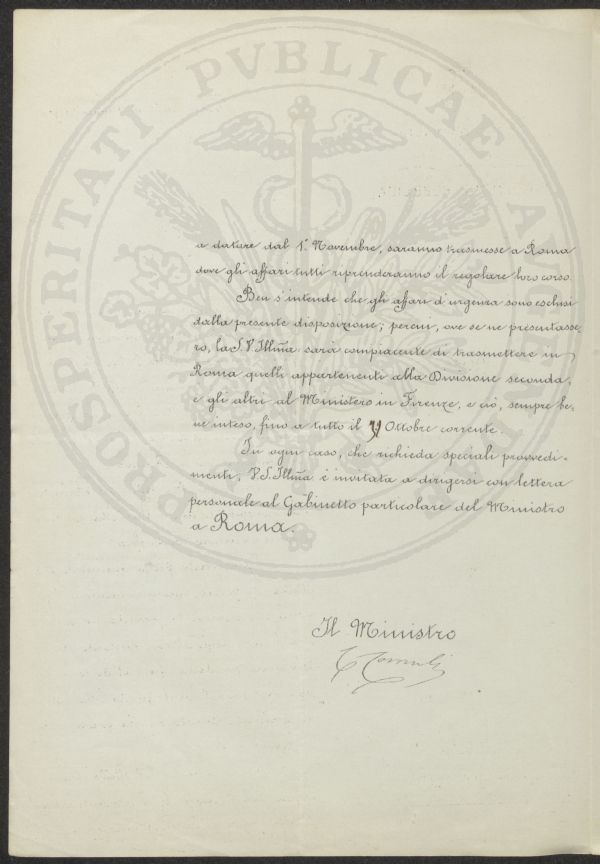 PROSPERITATI PVBLICAE
a datare dal 1º Novembre, saranno trasmesse a Roma
dove gli affari tutti riprenderanno il regolare loro corso.
Ben s'intende che gli affari d'urgenza sono esclusi
dalla presente disposizione; perciò, ove se ne presentasse-
ro, la S.V. Illma sarà compiacente di trasmettere in
Roma quelli appartenenti alla Divisione seconda,
e gli altri al Ministero in Firenze, e ciò, sempre be-
ne inteso, fino a tutto il Ottobre corrente.
In ogni caso, che richieda speciali provvedi-
menti, V.S. Illma è invitata a dirigersi con lettera
personale al Gabinetto particolare del Ministro
a Roma.
Il Ministro